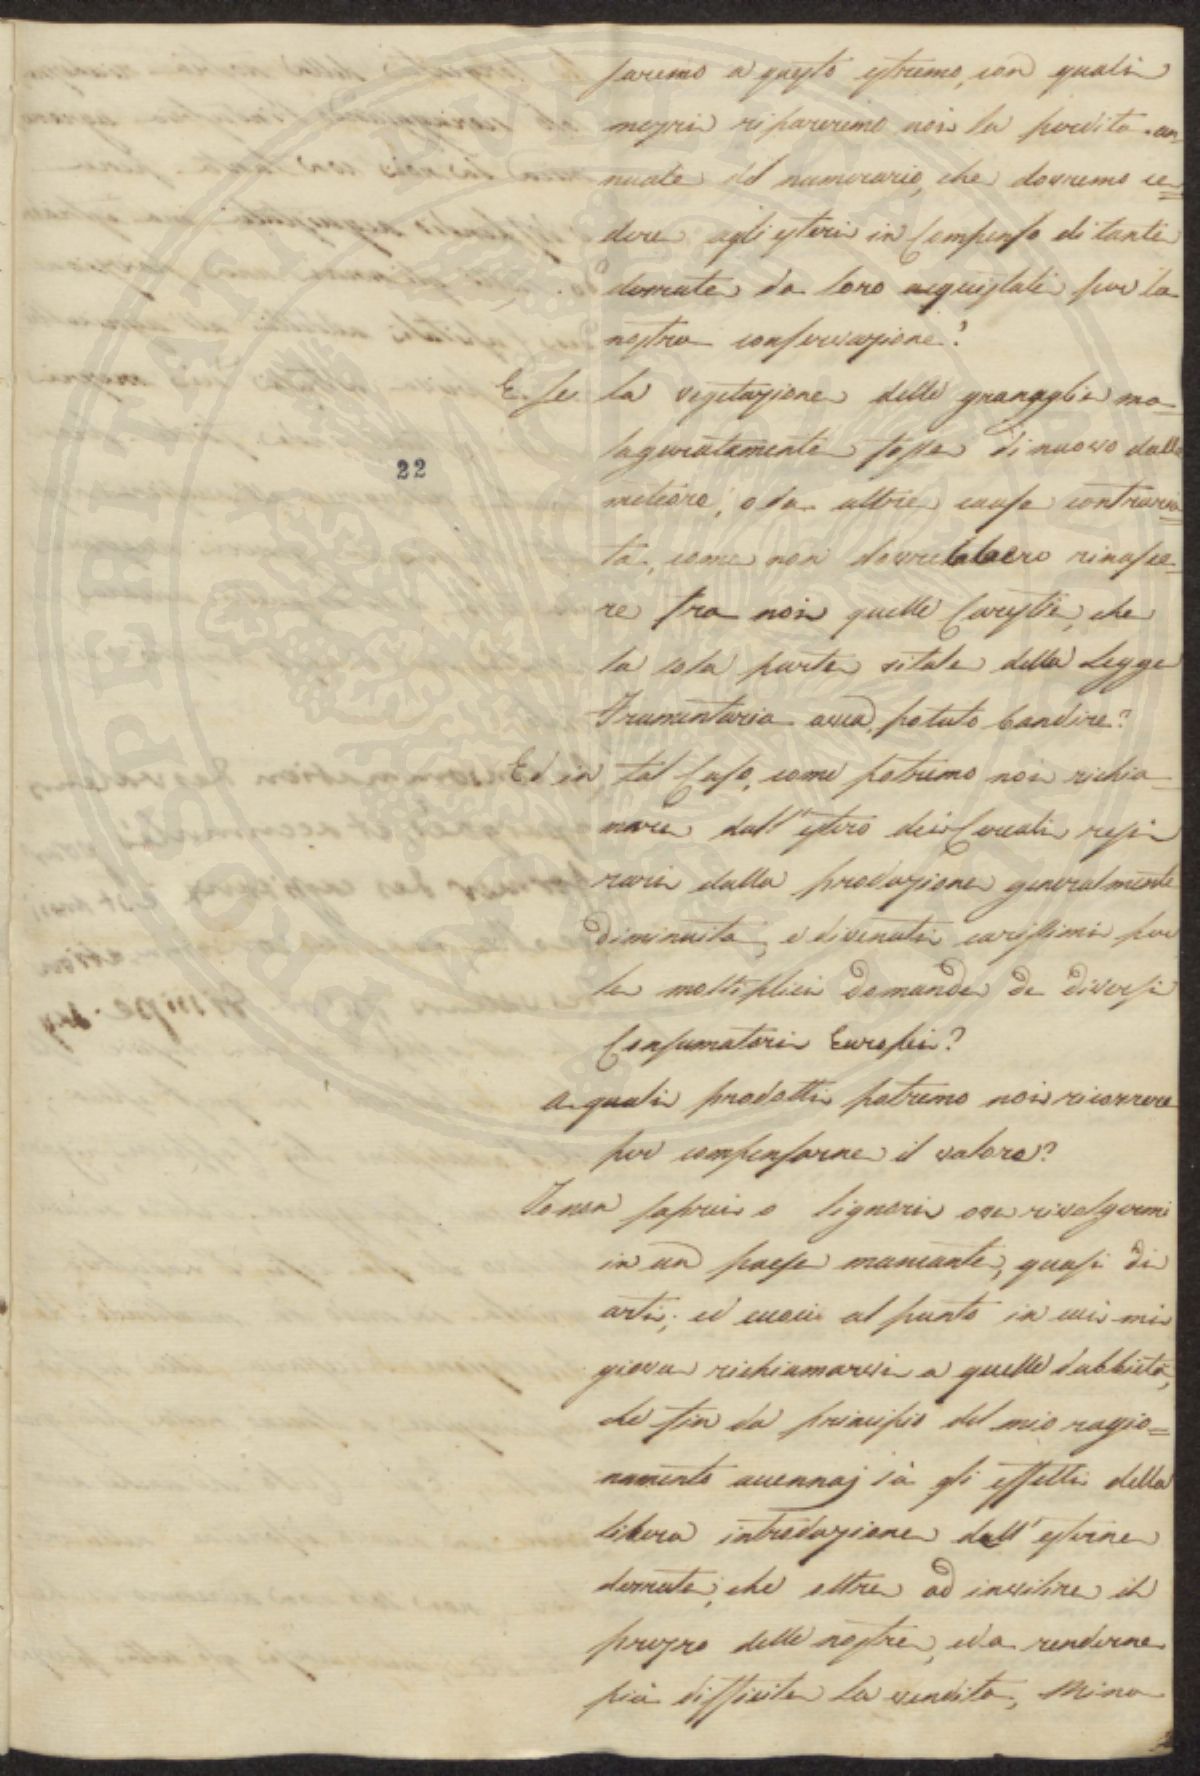 saremo a questo estremo, con quali
mezzi ripareremo noi la perdita an=
nuale del numerario, che dovremo ce=
dere agli esteri in Compenso di tante
derrate da loro acquistate per la
nostra conservazione?
E se la vegetazione delle granaglie ma=
laguratamente fosse di nuovo dalle
meteore, o da altre cause contraria=
ta, come non dovrebbero rinasce=
re tra noi quelle Carestie, che
la sola parte vitale della Legge
Frumentaria avea potuto bandire?
22
Ed in tal Caso, come potremo noi richia=
mare dall'estero dei Cereali resi
rari dalla produzione generalmente
diminuita, e divenuti carissimi per
le moltiplici domande de diversi
Consumatori Europei?
A quali prodotti potremo noi ricorrere
per compensarne il valore?
Io non saprei o Signori ove rivolgermi
in un paese mancante quasi di
arti; ed eccoci al punto in cui mi
giova richiamarvi a quelle dubbietà,
che fin da principio del mio ragio=
namento accennaj sù gli effetti della
libera introduzione dell'esterne
derrate, che oltre ad invilire il
prezzo delle nostre, ed a renderne
più difficile la vendita, Mina
PROSPERITATI PUBLICAE